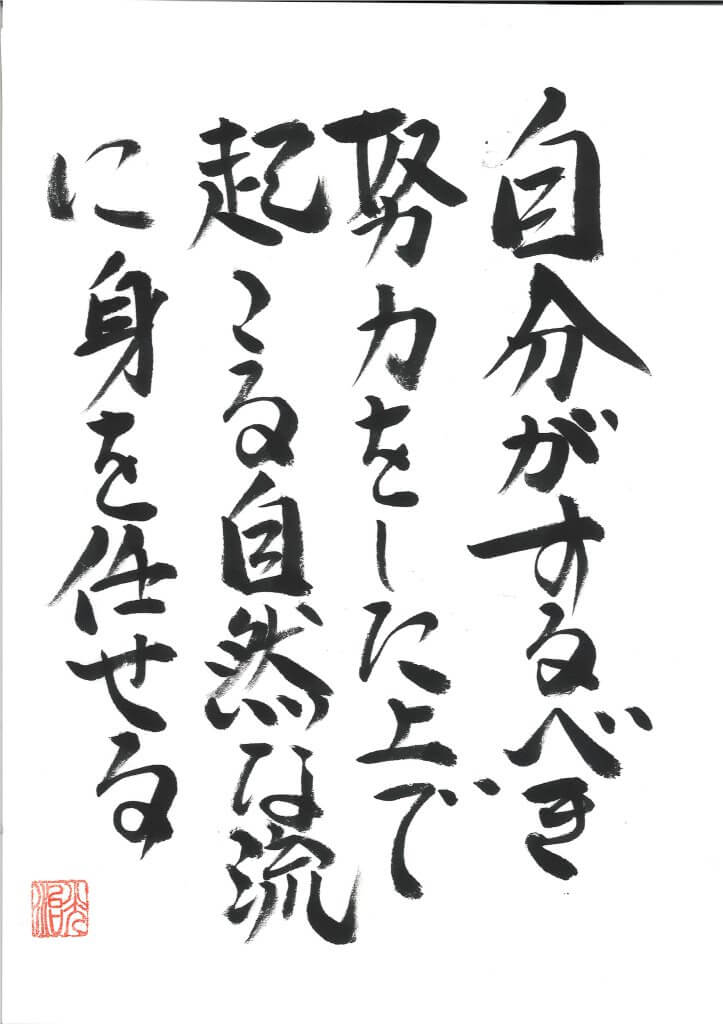 自分がするべき
努力をした上で
起こる自然な流
に身を任せる